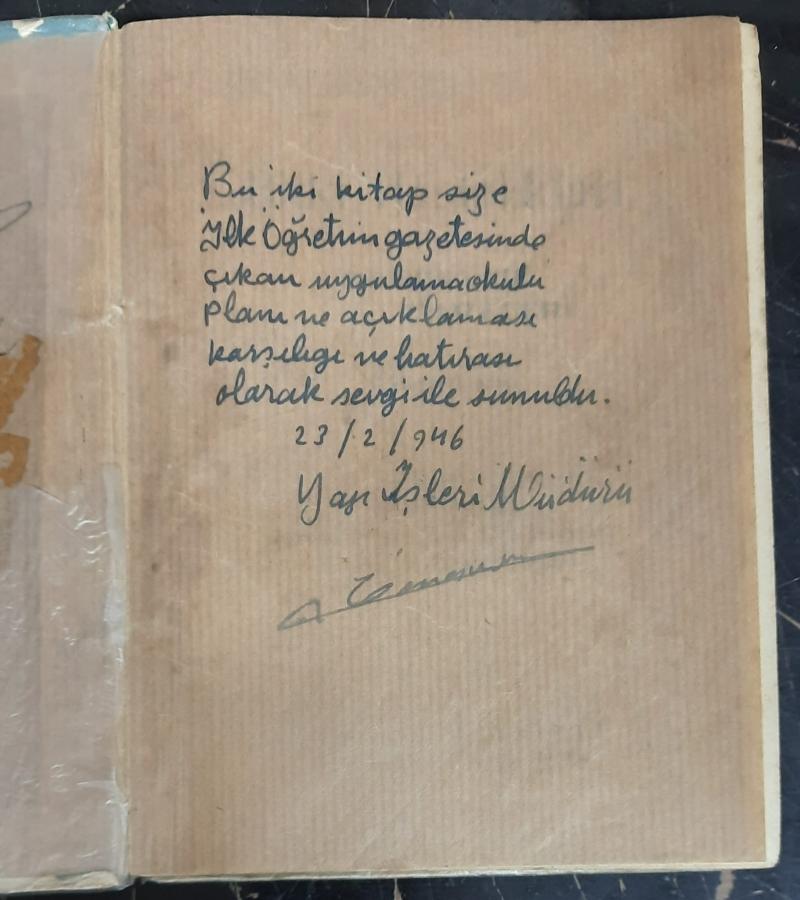 Bu iki kitap size
İlk Öğretim gazetesinde
çıkan uygulama okulu
planı ve açıklaması
karşılığı ve hatırası
olarak sevgi ile sunuldu.
23/2/946
Yapı İşleri Müdürü